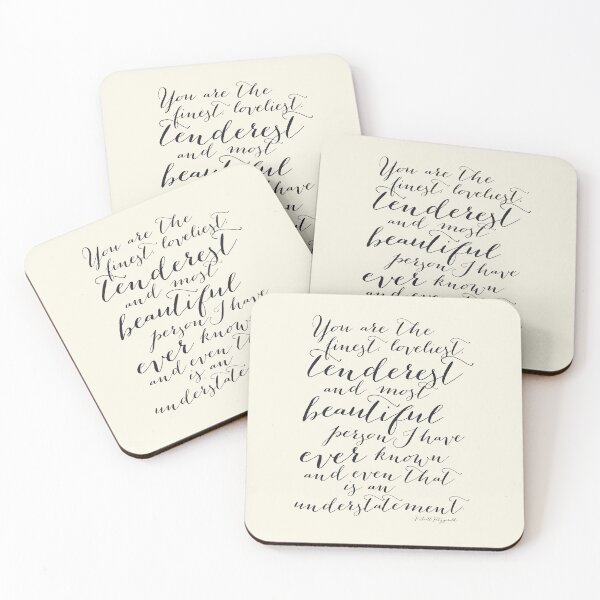 You are the
finest, loveliest,
tenderest
and most
beautiful
I have
You are the
finest, loveliest,
tenderest
and most
beautiful
person I have
ever known
and even t
You are the
finest, loveliest,
tenderest
and most
beautiful
person I have
ever know
and even tha
is an
understate
You are the
finest, loveliest,
tenderest
and most
beautiful
person I have
ever known
and even that
is an
understatement
F. Scott Fitzgerald